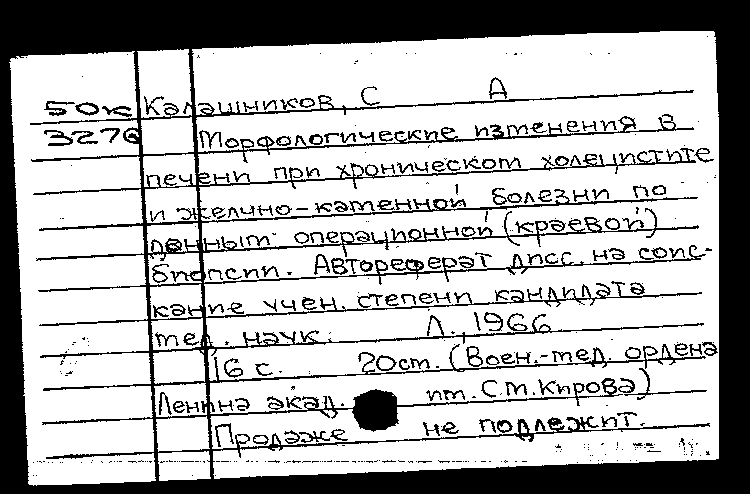 50к Калашников, С А
327а Морфологические изменения в
печени при хроническом холецистите
и желчно-каменной болезни по
данным операционной (краевой)
биопсии. Автореферат дисс. на соис-
кание учен. степени кандидата
мед. наук. Л., 1966
16 с. 20см. (Воен.-мед. ордена
Ленина акад. им. С.М.Кирова)
Продаже не подлежит.